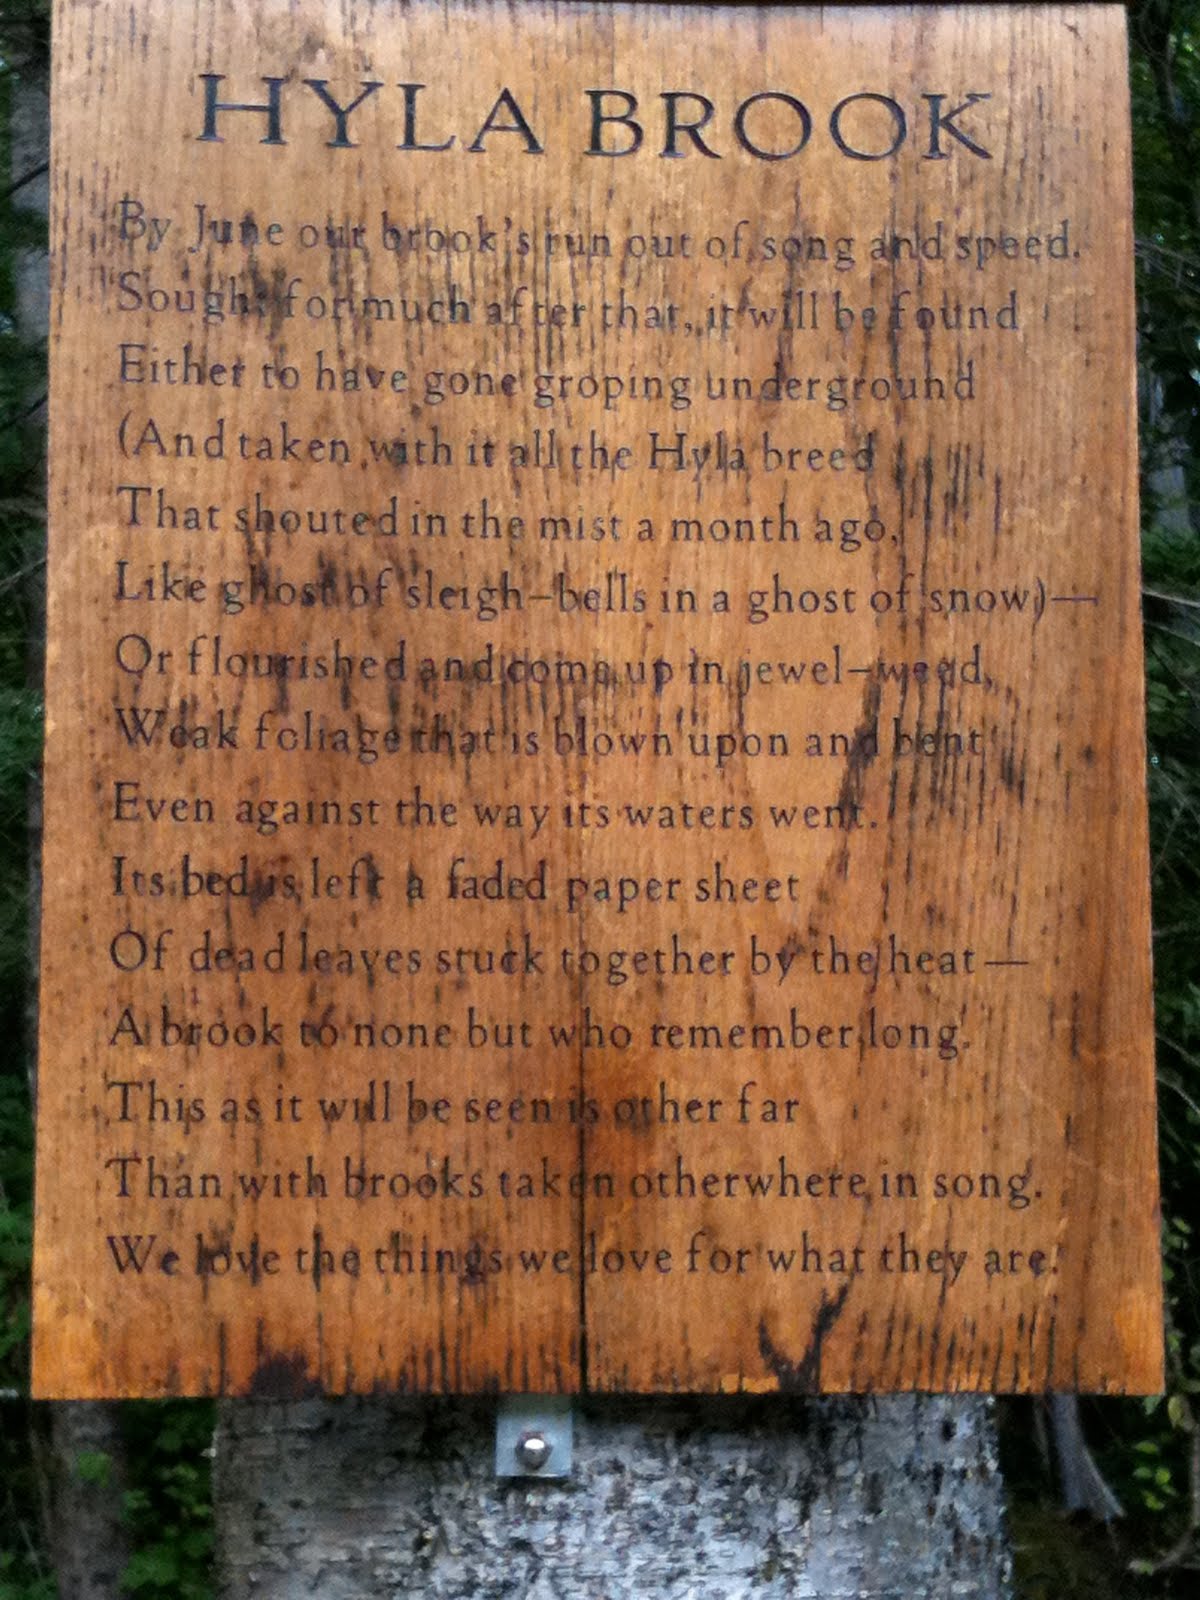 HYLA BROOK
By June our brook's run out of song and speed.
Sought for much after that, it will be found
Either to have gone groping underground
(And taken with it all the Hyla breed
That shouted in the mist a month ago,
Like ghost of sleigh-bells in a ghost of snow)—
Or flourished and come up in jewel-weed,
Weak foliage that is blown upon and bent
Even against the way its waters went.
Its bed is left a faded paper sheet
Of dead leaves stuck together by the heat—
A brook to none but who remember long.
This as it will be seen is other far
Than with brooks taken otherwhere in song.
We love the things we love for what they are.